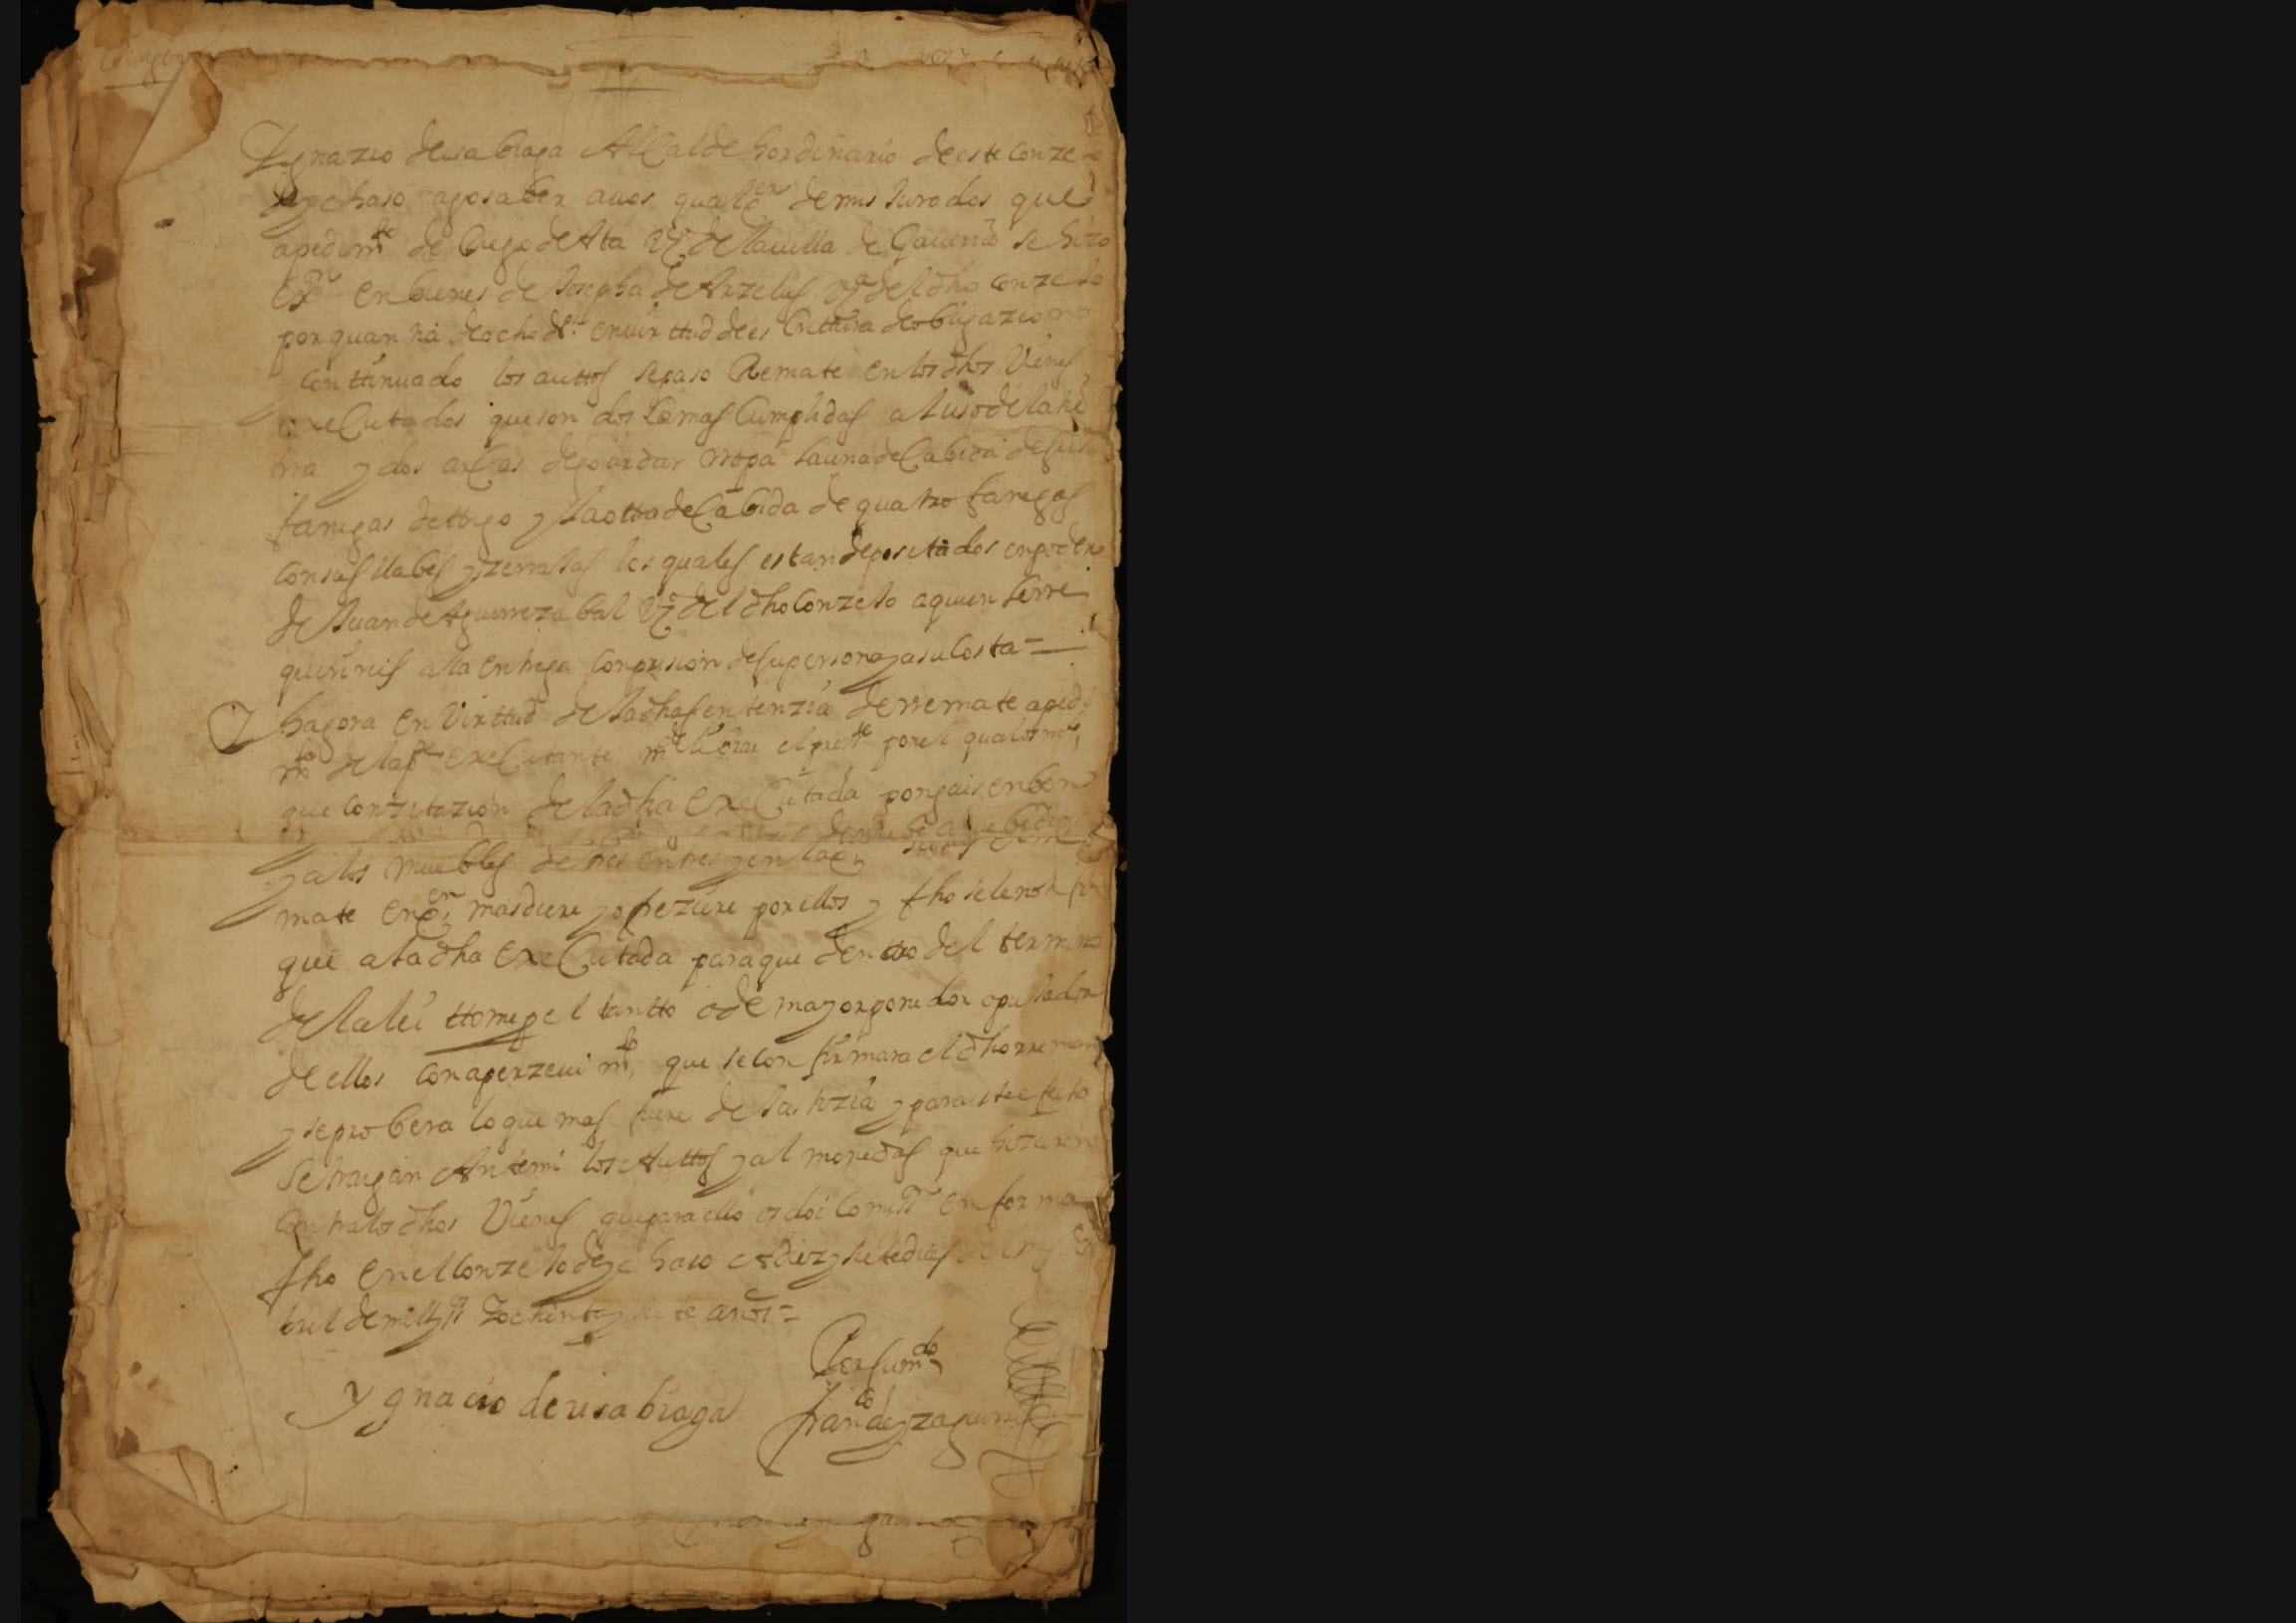 Ygnazio de usabiaga Alcalde hordinario de este conze
de ychaso ago saber a uos qualer de mis Jurados que
a pedimto de Diego de Ata vzo de la uilla de Gauiria se hizo
exon en bienes de Josepha de Arzelus vza del dho conzeJo
por quanna de ocho ds en uirttud de escritura de obligazion
y conttinuado los auttos se paso Remate en los dhos Vienes
executtados que son dos Camas Cumplidas al uso de la
rra y dos arcas de goardar rropa la una de Cabida de seis
fanegas de ttrigo y la otra de Cabida de quatro fanegas
con sus llabes y zerraJas los quales estan depositados en poder
de Juan de Aguirrezabal vzo del dho ConzeJo a quien le rre
quirireis a la entrega con prision de su persona y a su Costa =
Y hagora en Virttud de la dha sentenzia de rremate a pedi
mto de la pte exeCutante mde librar el preste por el qual os mdo
que con zitazion de la dha exeCutada pongais en ben
y a los muebles de tres en tres y en la
mate en qn mas diere y ofreziere por ellos y fho se le notifi
que a la dha exeCutada para que dentro del termino
de la lei ttome por el tantto o de mayor ponedor o puJador
de ellos con aperzeuimto, que se confirmara el dho rremate
y se probera lo que mas fuere de Justizia y para este efecto
se traigan Ante mi los Auttos y al monedas que hizieren
contra los dhos Vienes que para ello os doi Comon en forma
fho en el ConzeJo de ychaso a diez y siete dias de
bril de mill y ss y ochenta y siete años =
Por su mdo
Ygnacio de usabiaga franco de yzaguirre